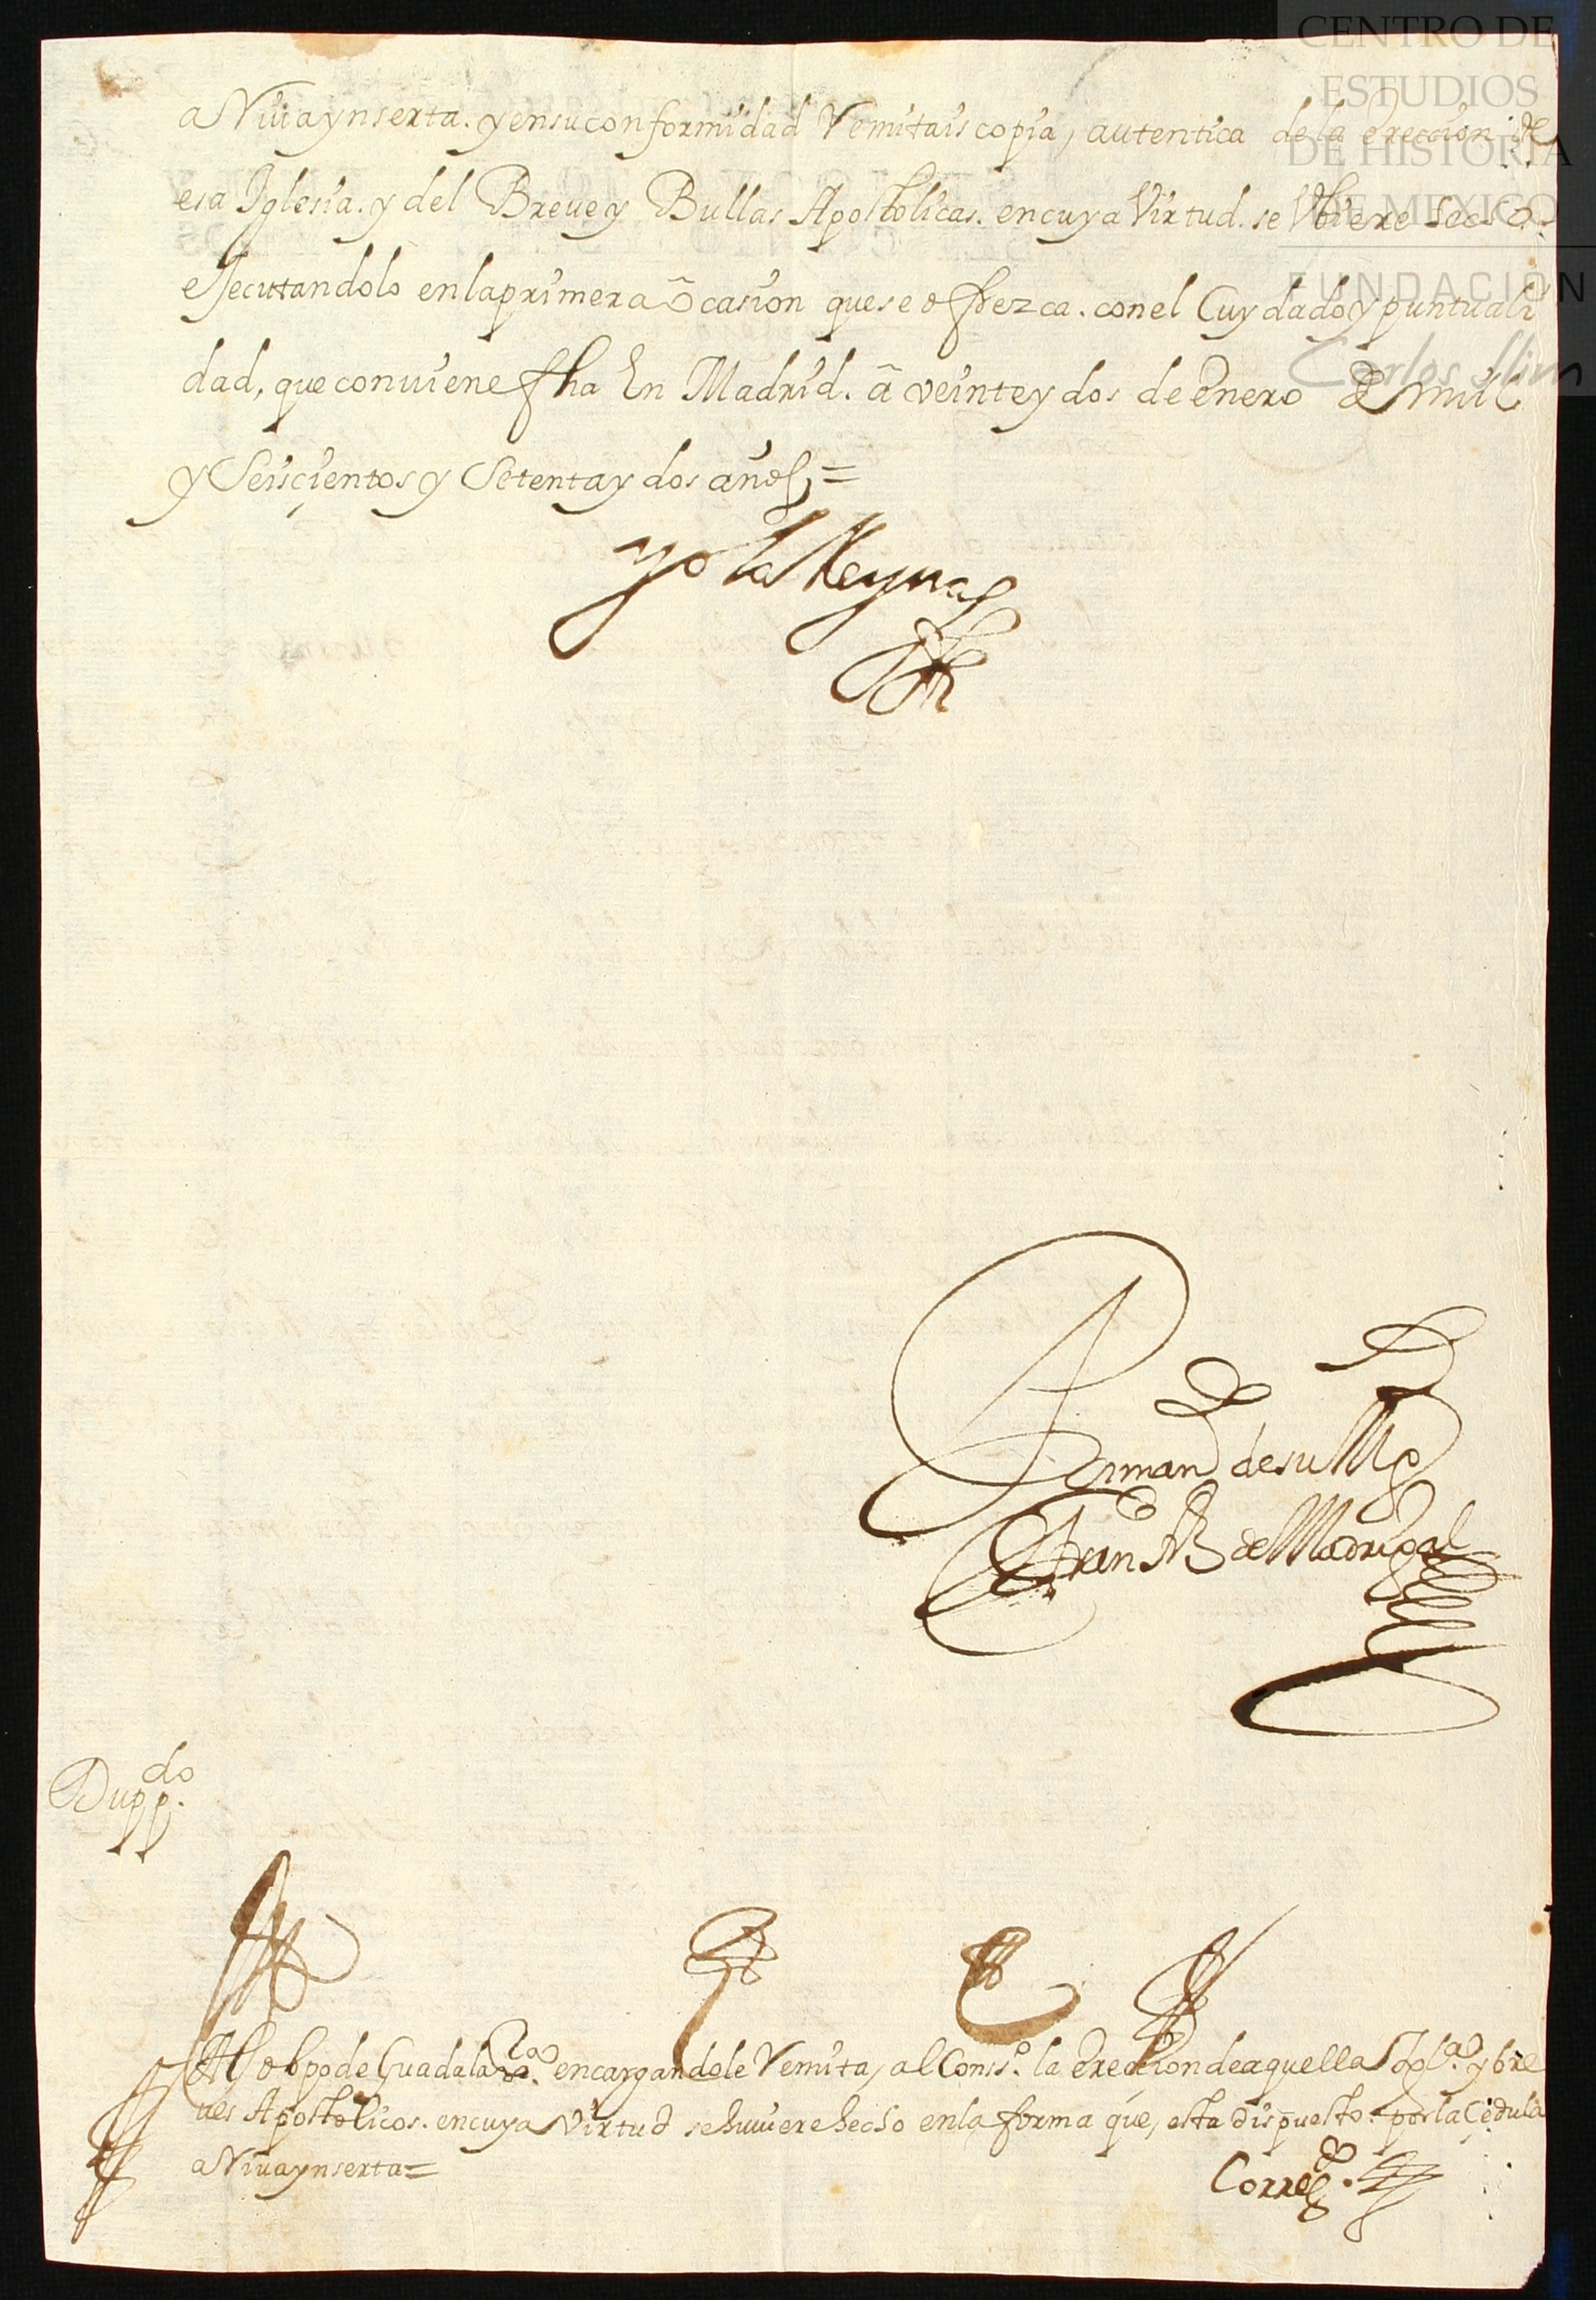 CENTRO DE
ESTUDIOS
DE HISTORIA
DE MEXICO
FUNDACIÓN
Carlos Slim
aRiua ynserta. y en su conformidad Remitais copia, autentica de la Ereccion de
esa Iglesia. y del Breue y Bullas Apostolicas. en cuya Virtud. se Vbiere hecho.
ejecutandolo en la primera ocasion que se ofrezca. con el Cuydado y puntuali
dad, que conuiene fha En Madrid. â veinte y dos de Enero de mil
y Seisçientos y Setenta y dos años =
Yo la Reyna
Por mando de su Mgd
Franco de Madrigal
Duppdo.
Al obpo de Guadalaxra. encargandole Remita, al Conss.o la Ereccion de aquella Iglª. y bre
ues Apostolicos. en cuya Virtud se huuiere hecho en la forma que, esta dispuesto. por la Çedula
aRiua ynserta =
Corregda.